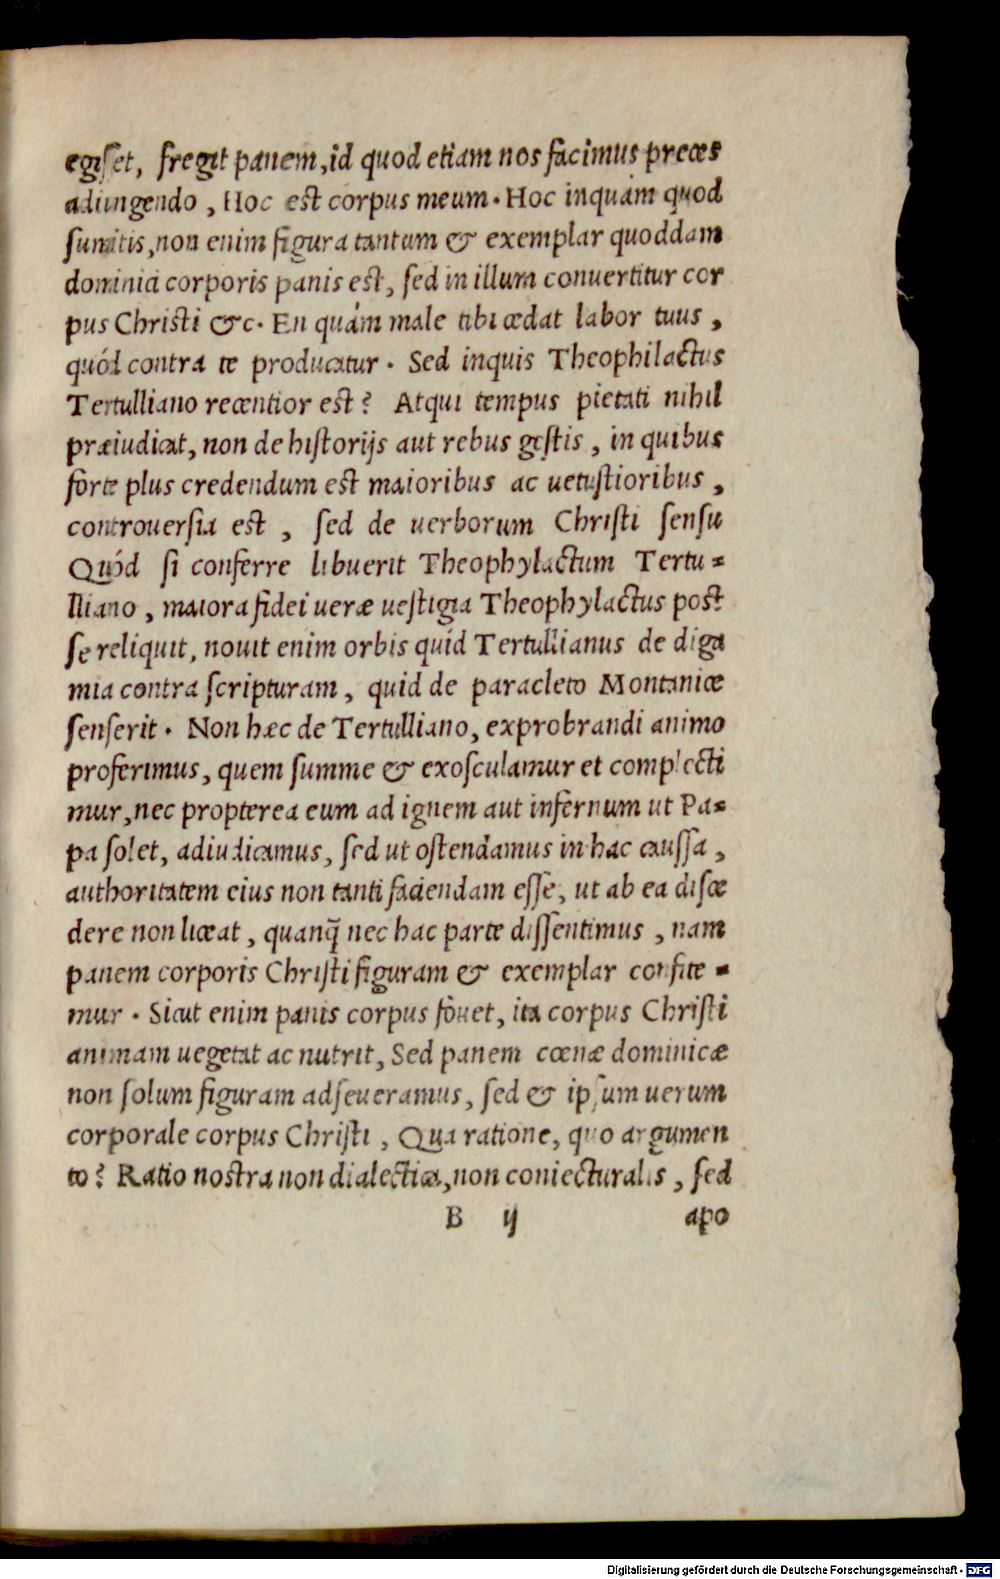 egiſſet, fregit panem, id quod etiam nos facimus preces
adiungendo, Hoc est corpus meum. Hoc inquàm quod
ſumitis, non enim figura tantum & exemplar quoddam
dominici corporis panis est, ſed in illum conuertitur cor
pus Christi &c. En quàm male tibi cedat labor tuus,
quód contra te producatur. Sed inquis Theophilactus
Tertulliano recentior est? Atqui tempus pietati nihil
præiudicat, non de hiſtorijs aut rebus geſtis, in quibus
forte plus credendum est maioribus ac uetuſtioribus,
controuerſia est, ſed de uerborum Chriſti ſenſu
Quód ſi conferre libuerit Theophylactum Tertu-
lliano, maiora fidei ueræ ueſtigia Theophylactus post
ſe reliquit, nouit enim orbis quid Tertullianus de diga
mia contra ſcripturam, quid de paracleto Montanicæ
ſenſerit. Non hæc de Tertulliano, exprobrandi animo
proferimus, quem ſumme & exoſculamur et complecti
mur, nec propterea eum ad ignem aut infernum ut Pa-
pa ſolet, adiudicamus, ſed ut oſtendamus in hac cauſſa,
authoritatem eius non tanti faciendam eſſe, ut ab ea diſce
dere non liceat, quanq̃ nec hac parte diſſentimus, nam
panem corporis Chriſti figuram & exemplar confite-
mur. Sicut enim panis corpus fouet, ita corpus Chriſti
animam uegetat ac nutrit, Sed panem cœnæ dominicæ
non ſolum figuram adſeueramus, ſed & ipſum uerum
corporale corpus Chriſti, Qua ratione, quo argumen
to? Ratio nostra non dialectica, non coniecturalis, ſed
B ij apo
Digitalisierung gefördert durch die Deutsche Forschungsgemeinschaft - DFG